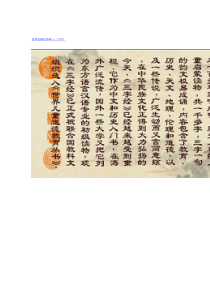 童启蒙读物，共一千多字，三字一句
的韵文极易成诵，内容包含了教育、
历史、天文、地理、伦理和道德以
及一些传说，广泛生动而又言简意赅。
在中华民族文化正得到大力弘扬的
今天，《三字经》已经越来越受到重
视，它作为中文和历史入门书，在海
外广泛流传，国外一些大学又把它列
为东方语言汉语专业的初级读物，现
在《三字经》已正式被联合国教科文
组织选入《世界儿童道德教育丛书》。